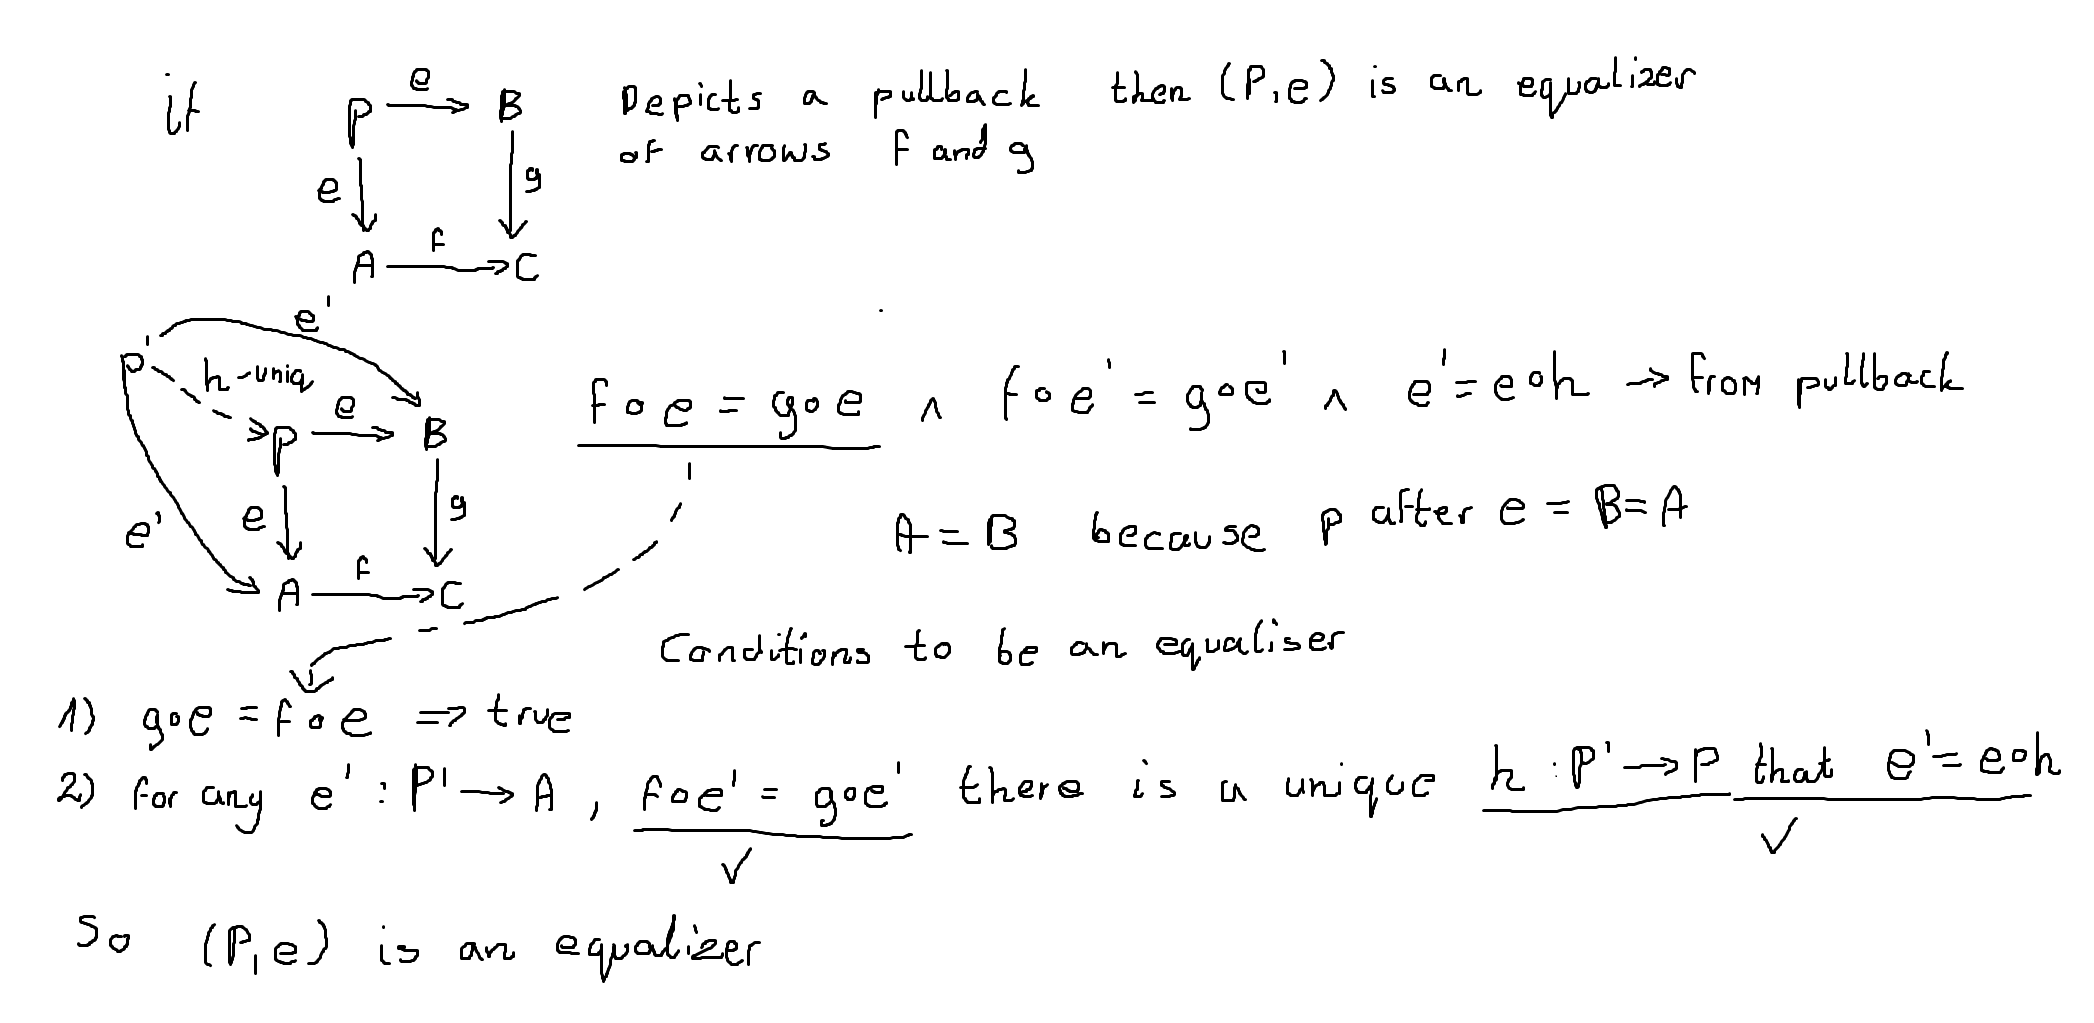 if P e B Depicts a pullback then (P,e) is an equalizer
e g of arrows f and g
A f C
e'
P' h-uniq e B f∘e = g∘e ∧ f∘e' = g∘e' ∧ e'=e∘h → from pullback
P
e' e g A=B because P after e = B=A
A f C
Conditions to be an equaliser
1) g∘e = f∘e => true
2) for any e' : P' → A , f∘e' = g∘e' there is a unique h : P' → P that e'=e∘h
✓ ✓
So (P,e) is an equalizer